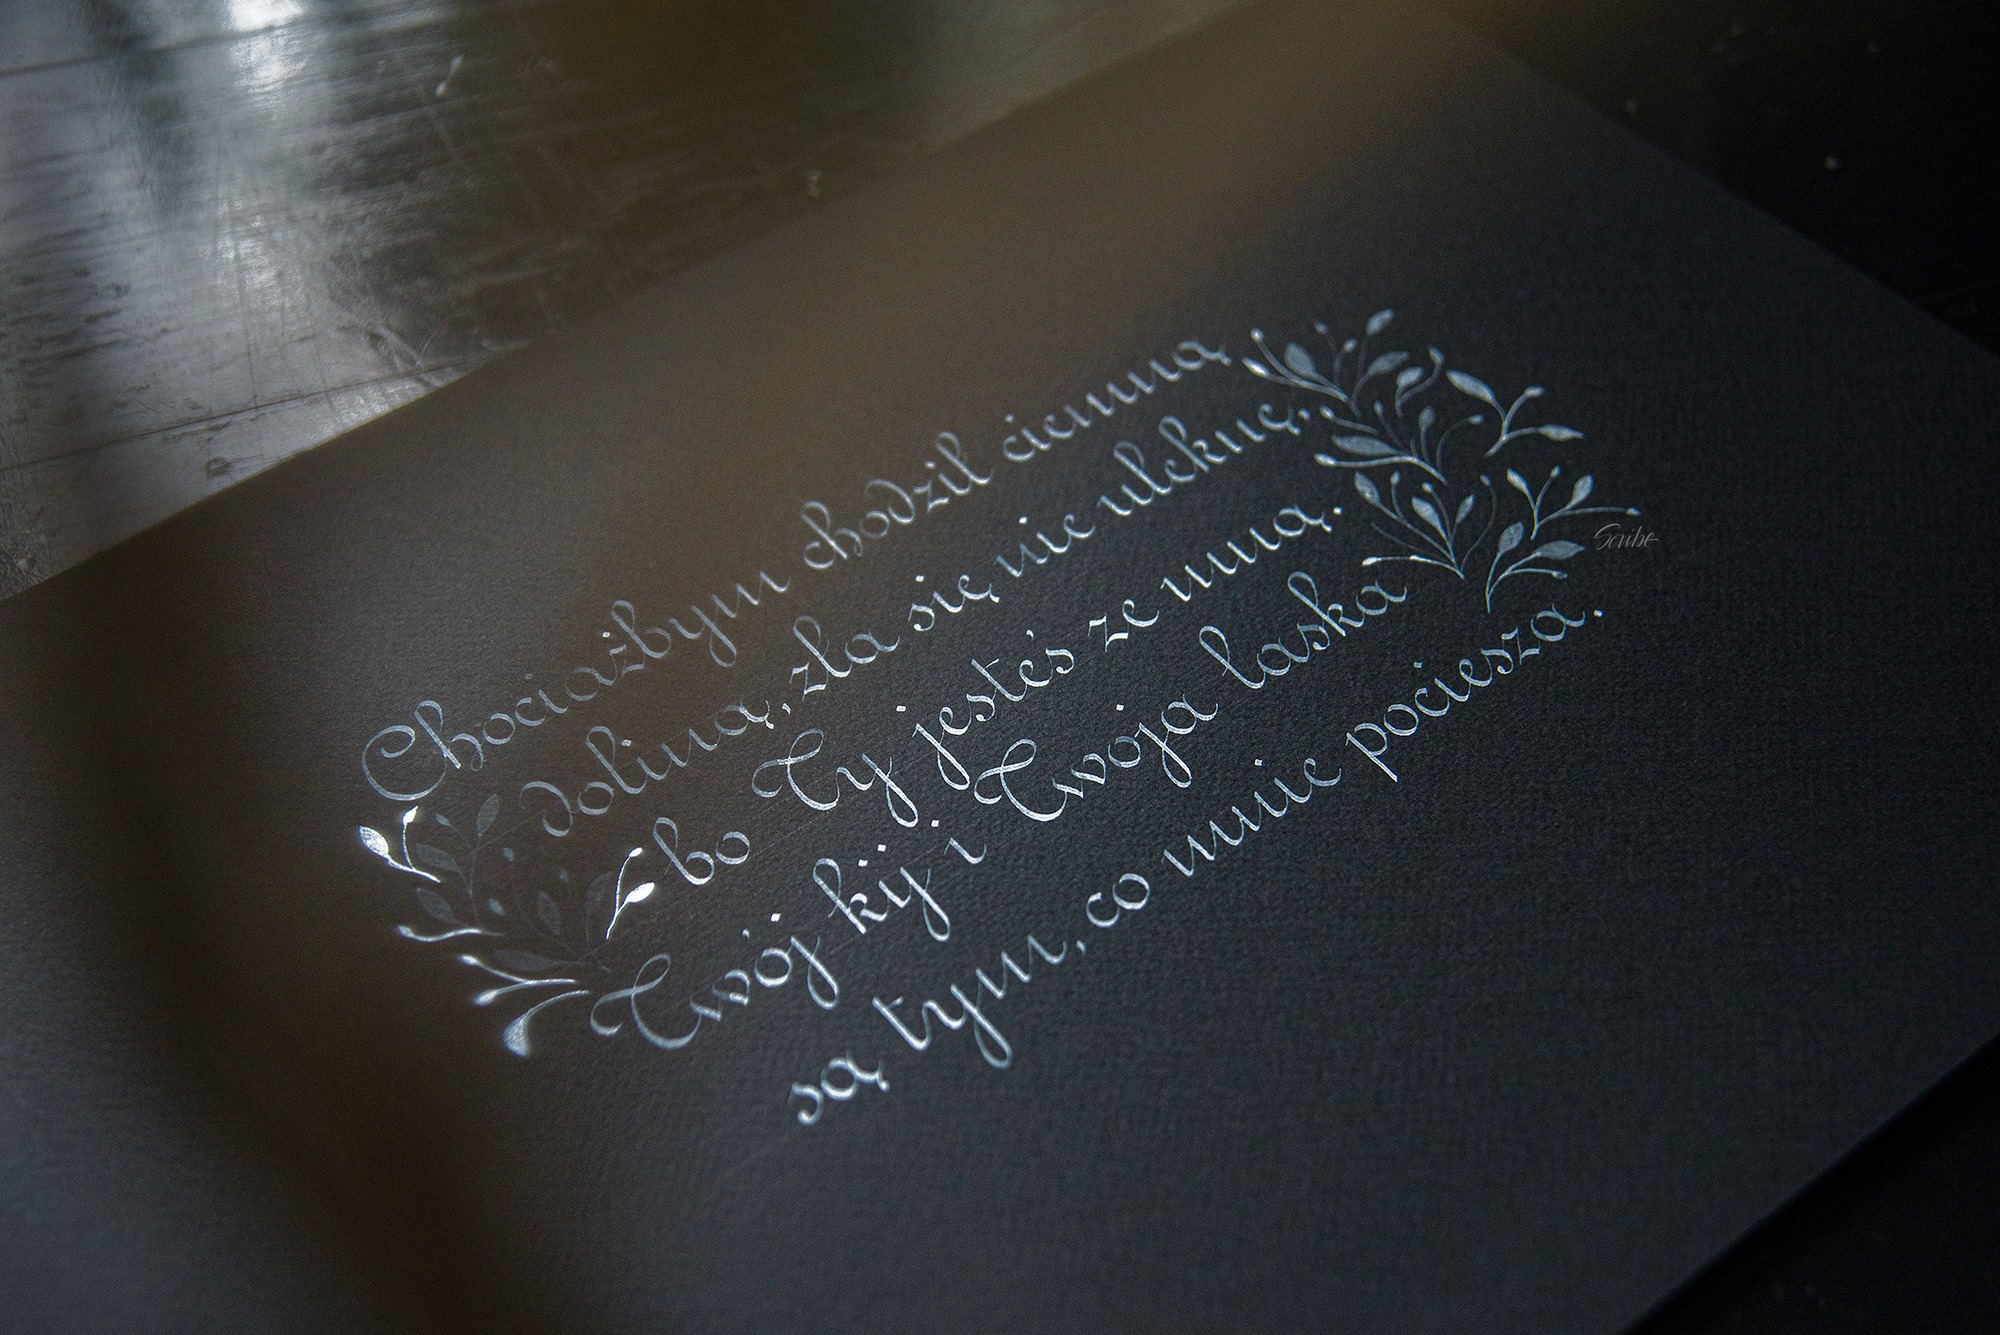 Chociażbym chodził ciemną
doliną, zła się nie ulęknę,
bo Ty jesteś ze mną.
Twój kij i Twoja laska
są tym, co mnie pociesza.
Scribe